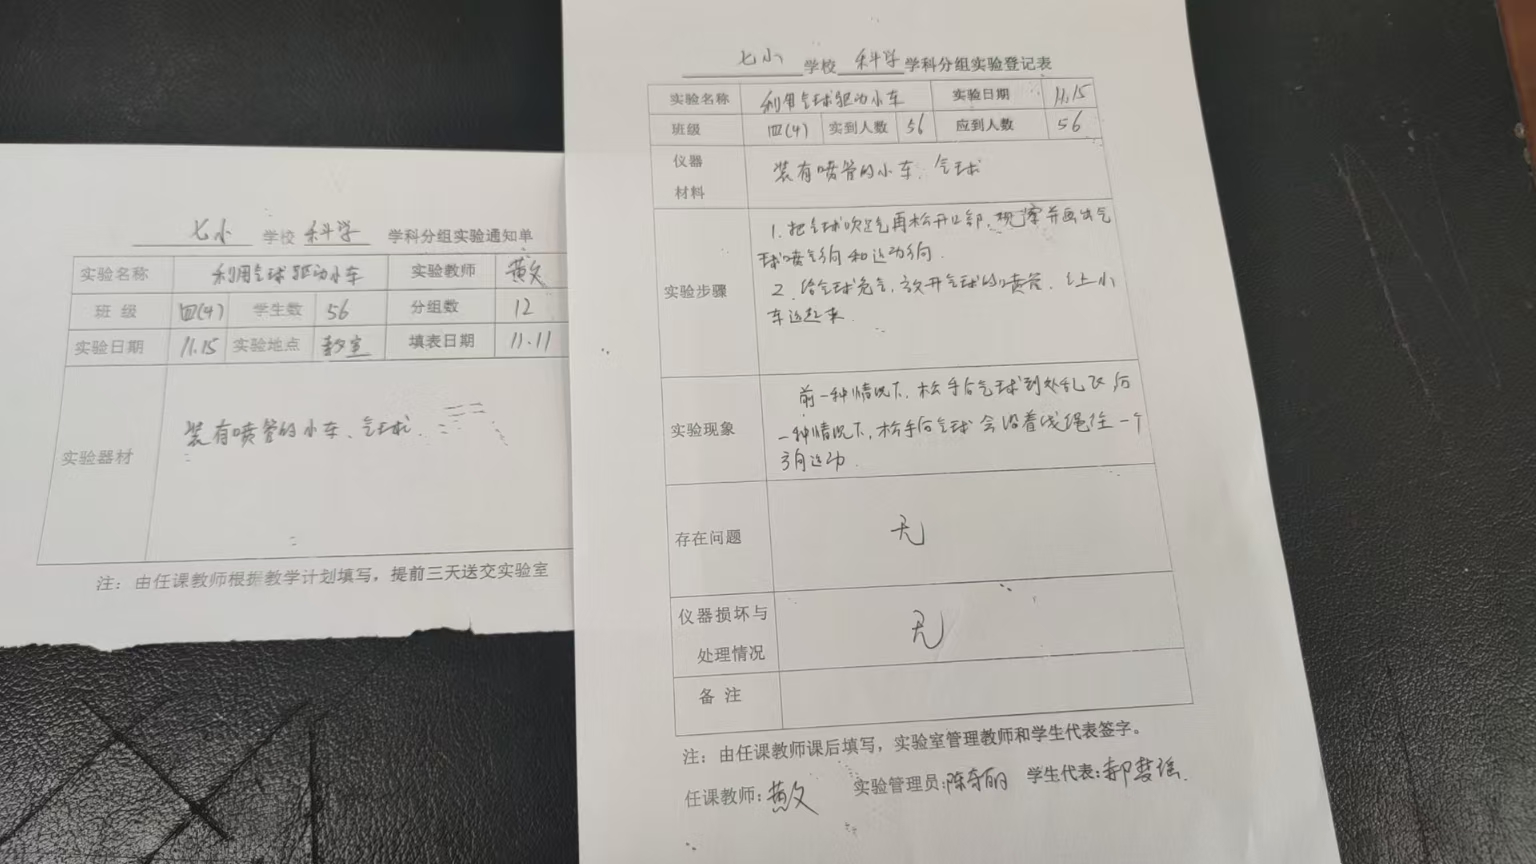 七小 学校 科学 学科分组实验通知单
实验名称 利用气球驱动小车 实验教师 黄文
班级 四(4) 学生数 56 分组数 12
实验日期 11.15 实验地点 教室 填表日期 11.11
实验器材 装有喷管的小车、气球
注：由任课教师根据教学计划填写，提前三天送交实验室
七小 学校 科学 学科分组实验登记表
实验名称 利用气球驱动小车 实验日期 11.15
班级 四(4) 实到人数 56 应到人数 56
仪器
材料
装有喷管的小车、气球
实验步骤
1.把气球吹足气再松开口部，观察并画出气
球喷气方向和运动方向.
2.给气球充气，放开气球的喷管，让小
车运起来.
实验现象
前一种情况下，松手后气球到处乱飞，后
一种情况下，松手后气球会沿着线绳往一个
方向运动.
存在问题 无
仪器损坏与
处理情况
无
备注
注：由任课教师课后填写，实验室管理教师和学生代表签字。
任课教师：黄文 实验管理员：陈奇丽 学生代表：郝梦瑶.